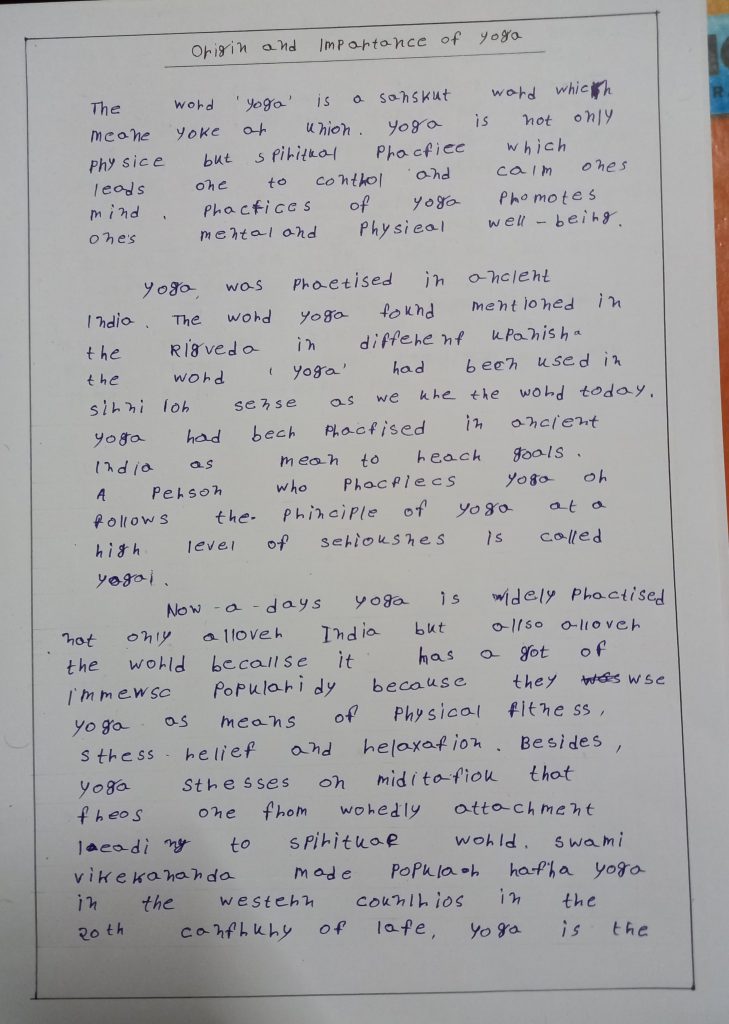 Origin and Importance of yoga
The word 'yoga' is a sanskut word which
meane yoke or union. yoga is not only
physice but spiritual practice which
leads one to control and calm ones
mind. practices of yoga promotes
one's mental and physical well-being.
yoga was practised in ancient
India. The word yoga found mentioned in
the Rigveda in different upanisha
the word 'yoga' had been used in
sinni lor sense as we uhe the word today.
yoga had been practised in ancient
India as mean to reach goals.
A person who practices yoga or
follows the principle of yoga at a
high level of seriousnes is called
yogai.
Now-a-days yoga is widely practised
not only allover India but allso allover
the world becallse it has a got of
immewsc popularidy because they wse
yoga as means of physical fitness,
stress-relief and relaxation. Besides,
yoga stresses on miditatiou that
frees one from woredly attachment
leading to spiritual world. swami
vikekananda made popular hatha yoga
in the western counlrios in the
20th canfhury of lafe, yoga is the